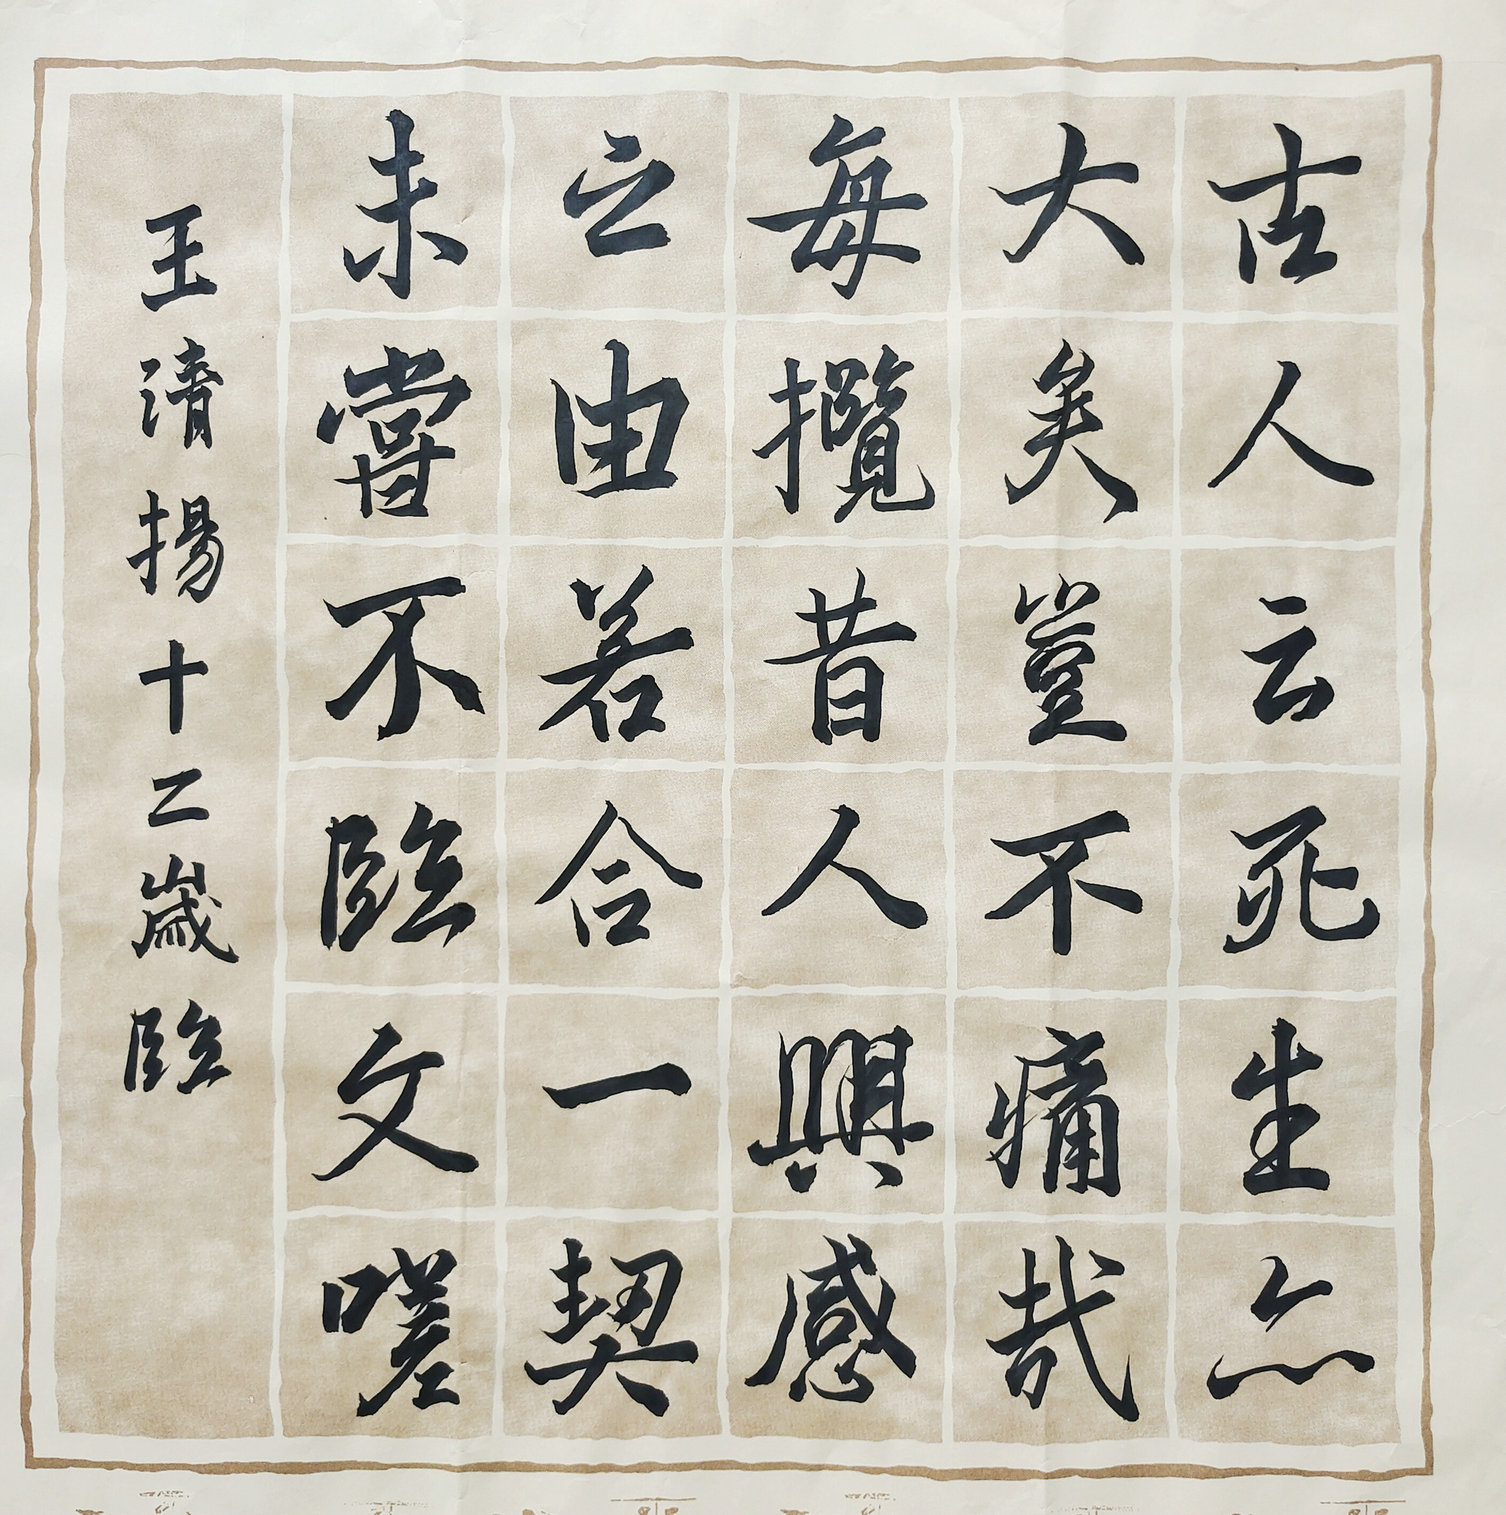 古人云死生亦
大矣豈不痛哉
每攬昔人興感
之由若合一契
未嘗不臨文嗟
王清揚十二歲臨